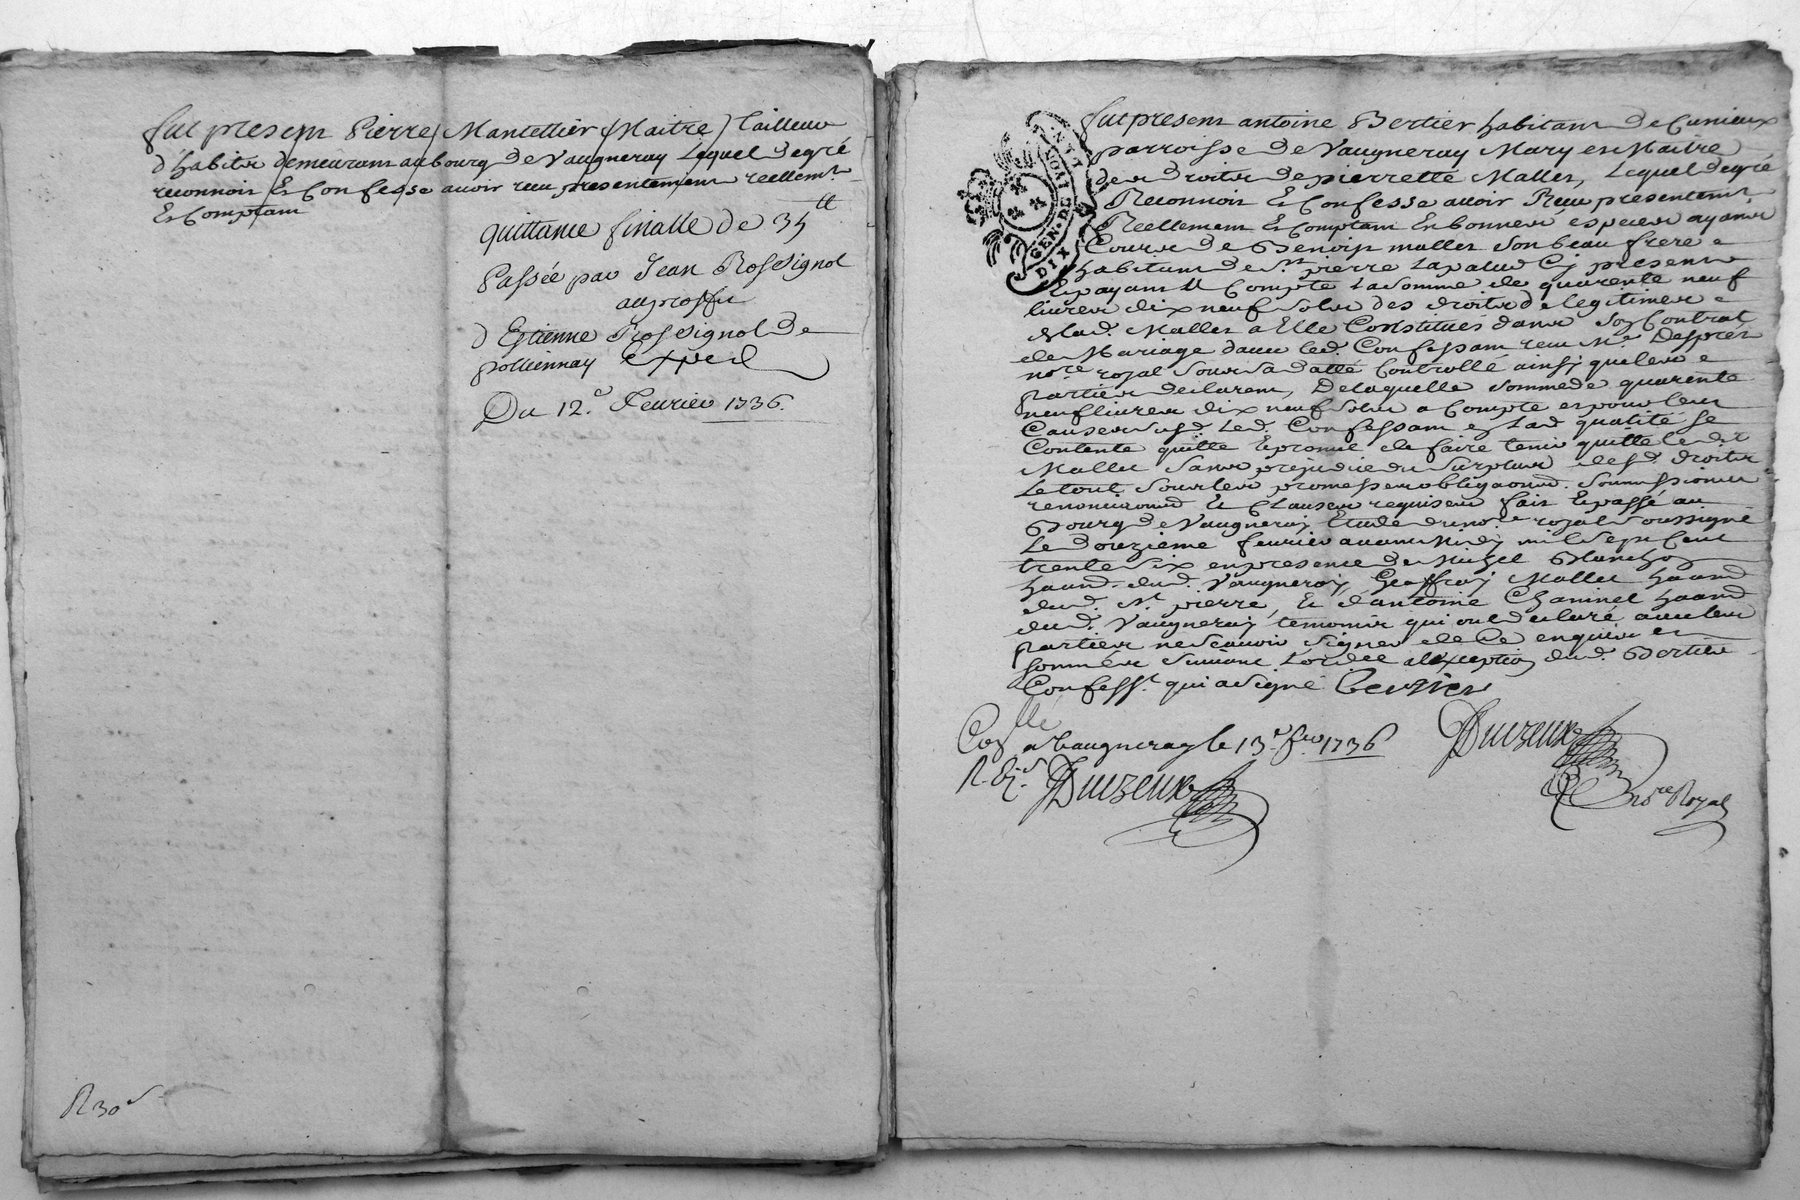 fut present Pierre Mantellier Maitre Tailleur
d'habits demeurant au bourg de Vaugneray Lequel de gré
reconnoit Et Confesse avoir receu presentement reellemt
Et Comptant
quittance finalle de 35 tt
Passée par Jean Rossignol
au proffit
d'Estienne Rossignol de
pollionnay Exped
Du 12.e Feurier 1736.
R 30 s
fut present antoine Bertier habitant de Cunieux
parroisse de Vaugneray Mary et Maitre
des droits de pierrette Mallet, Lequel de gré
Reconnoit Et Confesse avoir Receu presentemt
Reellement Et Comptant En bonnes especes ayant
Cours de Benoist mallet son beau frere
habitant de St pierre Lapalud Cy present
Et payant A Compte La somme de quarente neuf
livres dix neuf sols des droits de legitimes
de lad. Mallet a Elle Constitués dans son Contrat
de Mariage d'avec led. Confessant receu Me Desprez
notre royal sous sa datte Controllé ainsy que les
parties declarent, De laquelle somme de quarente
neuf livres dix neuf sols a Compte et pour les
Causes susd. Led. Confessant En Lad. qualité se
Contente quitte Et promet de faire tenir quitte ledit
Mallet sans prejudice du surplus desd. droits
Le tout sous les promesses obligaons. soumissions
renonciaons Et Clauses requises fait Et passé au
Bourg de Vaugneray Etude du nore royal soussigné
Le douzieme feurier avant Midy mil sept Cent
trente six en presence de Blanchon
habnt dud. Vaugneray, Geoffray Mallet habant
dud. St pierre, Et d'antoine Chaminel habant
dud. Vaugneray temoins qui ont declaré avec les
parties ne scavoir signer de Ce enquis et
sommés suivant L'ordce a l'exception dud. Bertier
Confesst. qui a signé Bertier
GEN. DE LYON
DIX
Collé a Vaugneray le 13e fer 1736
Duizeux
nore Royal
Duizeux